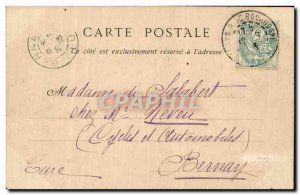 CARTE POSTALE
Ce côté est exclusivement réservé à l'adresse
Madame de Salabert
chez Mr Neveu
(Cycles et Automobiles)
Bernay
Eure